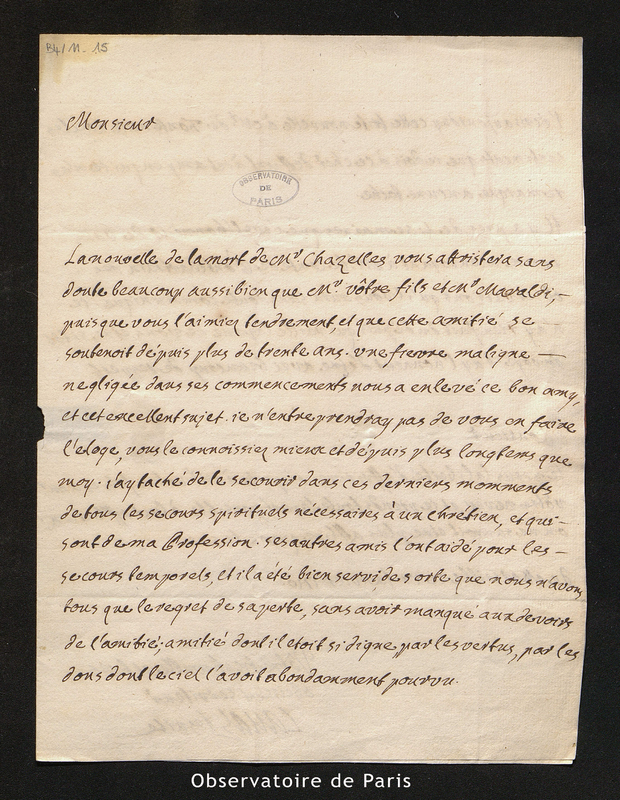 B4/11-15
Monsieur
OBSERVATOIRE
DE
PARIS
La nouvelle de la mort de Mr. Chazelles vous attristera sans
doute beaucoup aussi bien que Mr. vôtre fils et Mr. Maraldi,
puisque vous l'aimiez tendrement, et que cette amitié se
soutenoit dépuis plus de trente ans. une fievre maligne —
negligée dans ses commencements nous a enlevé ce bon amy,
et cet excellent sujet. ie n'entreprendray pas de vous en faire
l'eloge, vous le connoissiez mieux et dépuis plus longtems que
moy. j'ay taché de le secourir dans ces derniers momments
de tous les secours spirituels nécessaires à un Chrétien, et qui-
sont de ma Profession. ses autres amis l'ont aidé pour les —
secours temporels, et il a été bien servi de sorte que nous n'avons
tous que le regret de sa perte, sans avoir manqué aux devoirs
de l'amitié; amitié dont il etoit si digne par les vertus, par les
dons dont le ciel l'avoit abondamment pourvu.
Observatoire de Paris